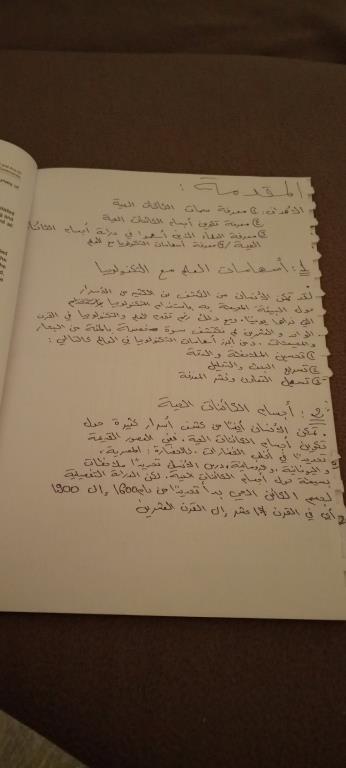 المقدمة:
الأهداف: ① معرفة سمات الكائنات الحية
② معرفة تكوين أجسام الكائنات الحية
③ معرفة العلماء الذين أسهموا في دراسة أجسام الكائنات
الحية / ④ معرفة أسهامات التكنولوجيا مع العلم
1: أسهامات العلم مع التكنولوجيا
لقد تمكن الأنسان من الكشف عن الكثير من الأسرار
حول البيئة المحيطة به باستخدام التكنولوجيا
التي نراها يوميًا. ومع ذلك رغم تقدم العلم والتكنولوجيا في القرن
الواحد والعشرين لم تكتشف سوى خمسة بالمئة من البحار
والمحيطات، ومن أبرز أسهامات التكنولوجيا في العالم كالتالي:
① تحسين الملاحظة والدقة
② تسريع البحث والتحليل
③ تسهيل التعاون ونشر المعرفة
2: أجسام الكائنات الحية
تمكن الأنسان أيضًا من كشف أسرار كثيرة حول
تكوين أجسام الكائنات الحية. ففي العصور القديمة
تحديدًا في أغلب الحضارات، كالحضارة: المصرية،
واليونانية، والرومانية، دون الأنسان تقريبًا ملاحظات
بسيطة حول أجسام الكائنات الحية. لكن الدراسة التفصيلية
لجسم الكائن الحي بدأ تقريبًا من عام 1600 إلى 1900
أي في القرن 17 عشر إلى القرن العشرين